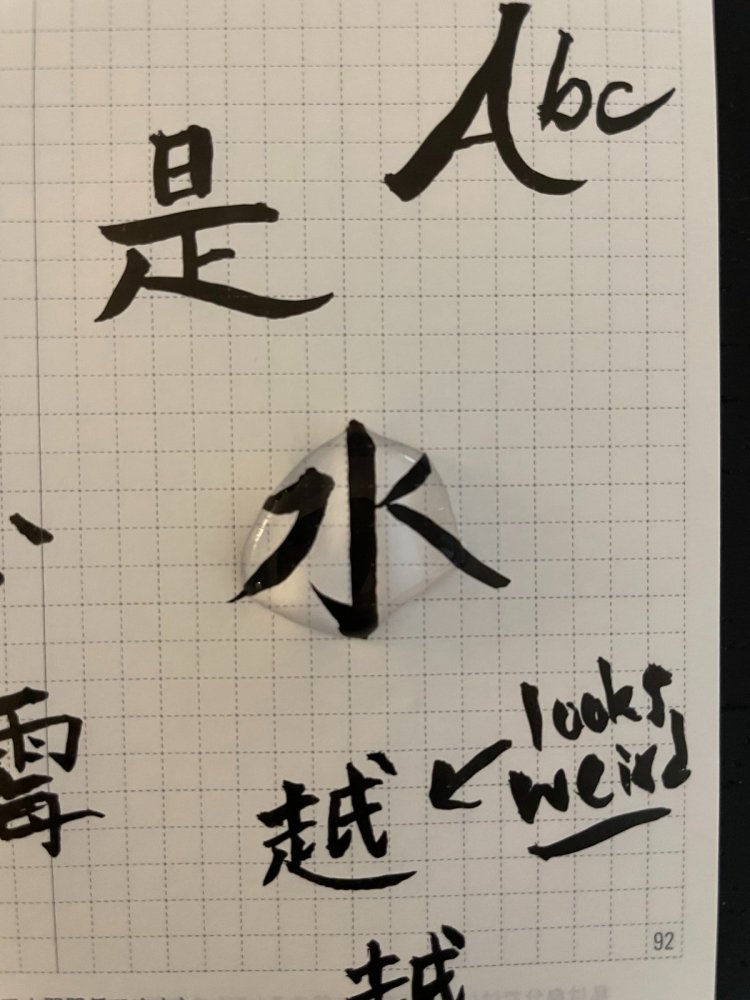 Abc
是
水
霉
looks
weird
越
92
越